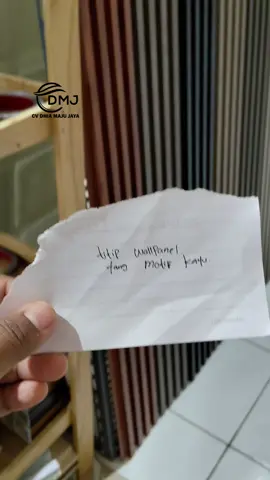 DMJ
CV DMIA MAJU JAYA
titip wallpanel
yang motif kayu